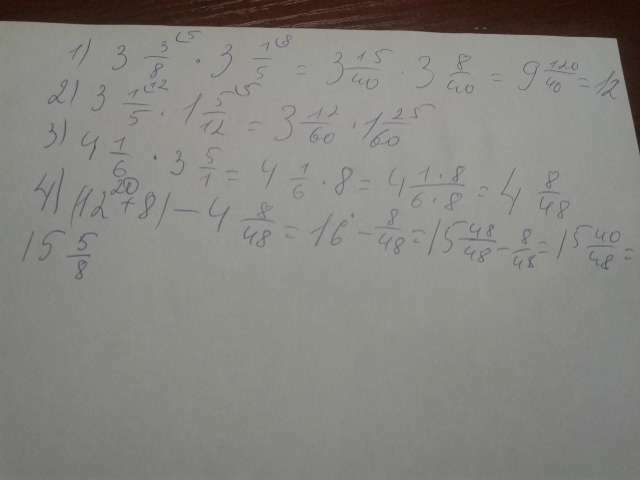 1) 3 3/8 (5 · 3 1/5 (8 = 3 15/40 · 3 8/40 = 9 120/40 = 12
2) 3 1/5 (12 · 1 5/12 (5 = 3 12/60 · 1 25/60
3) 4 1/6 · 3 5/1 = 4 1/6 · 8 = 4 1·8/6·8 = 4 8/48
4) (12 + 8) 20 − 4 8/48 = 16 − 8/48 = 15 48/48 − 8/48 = 15 40/48 =
15 5/8